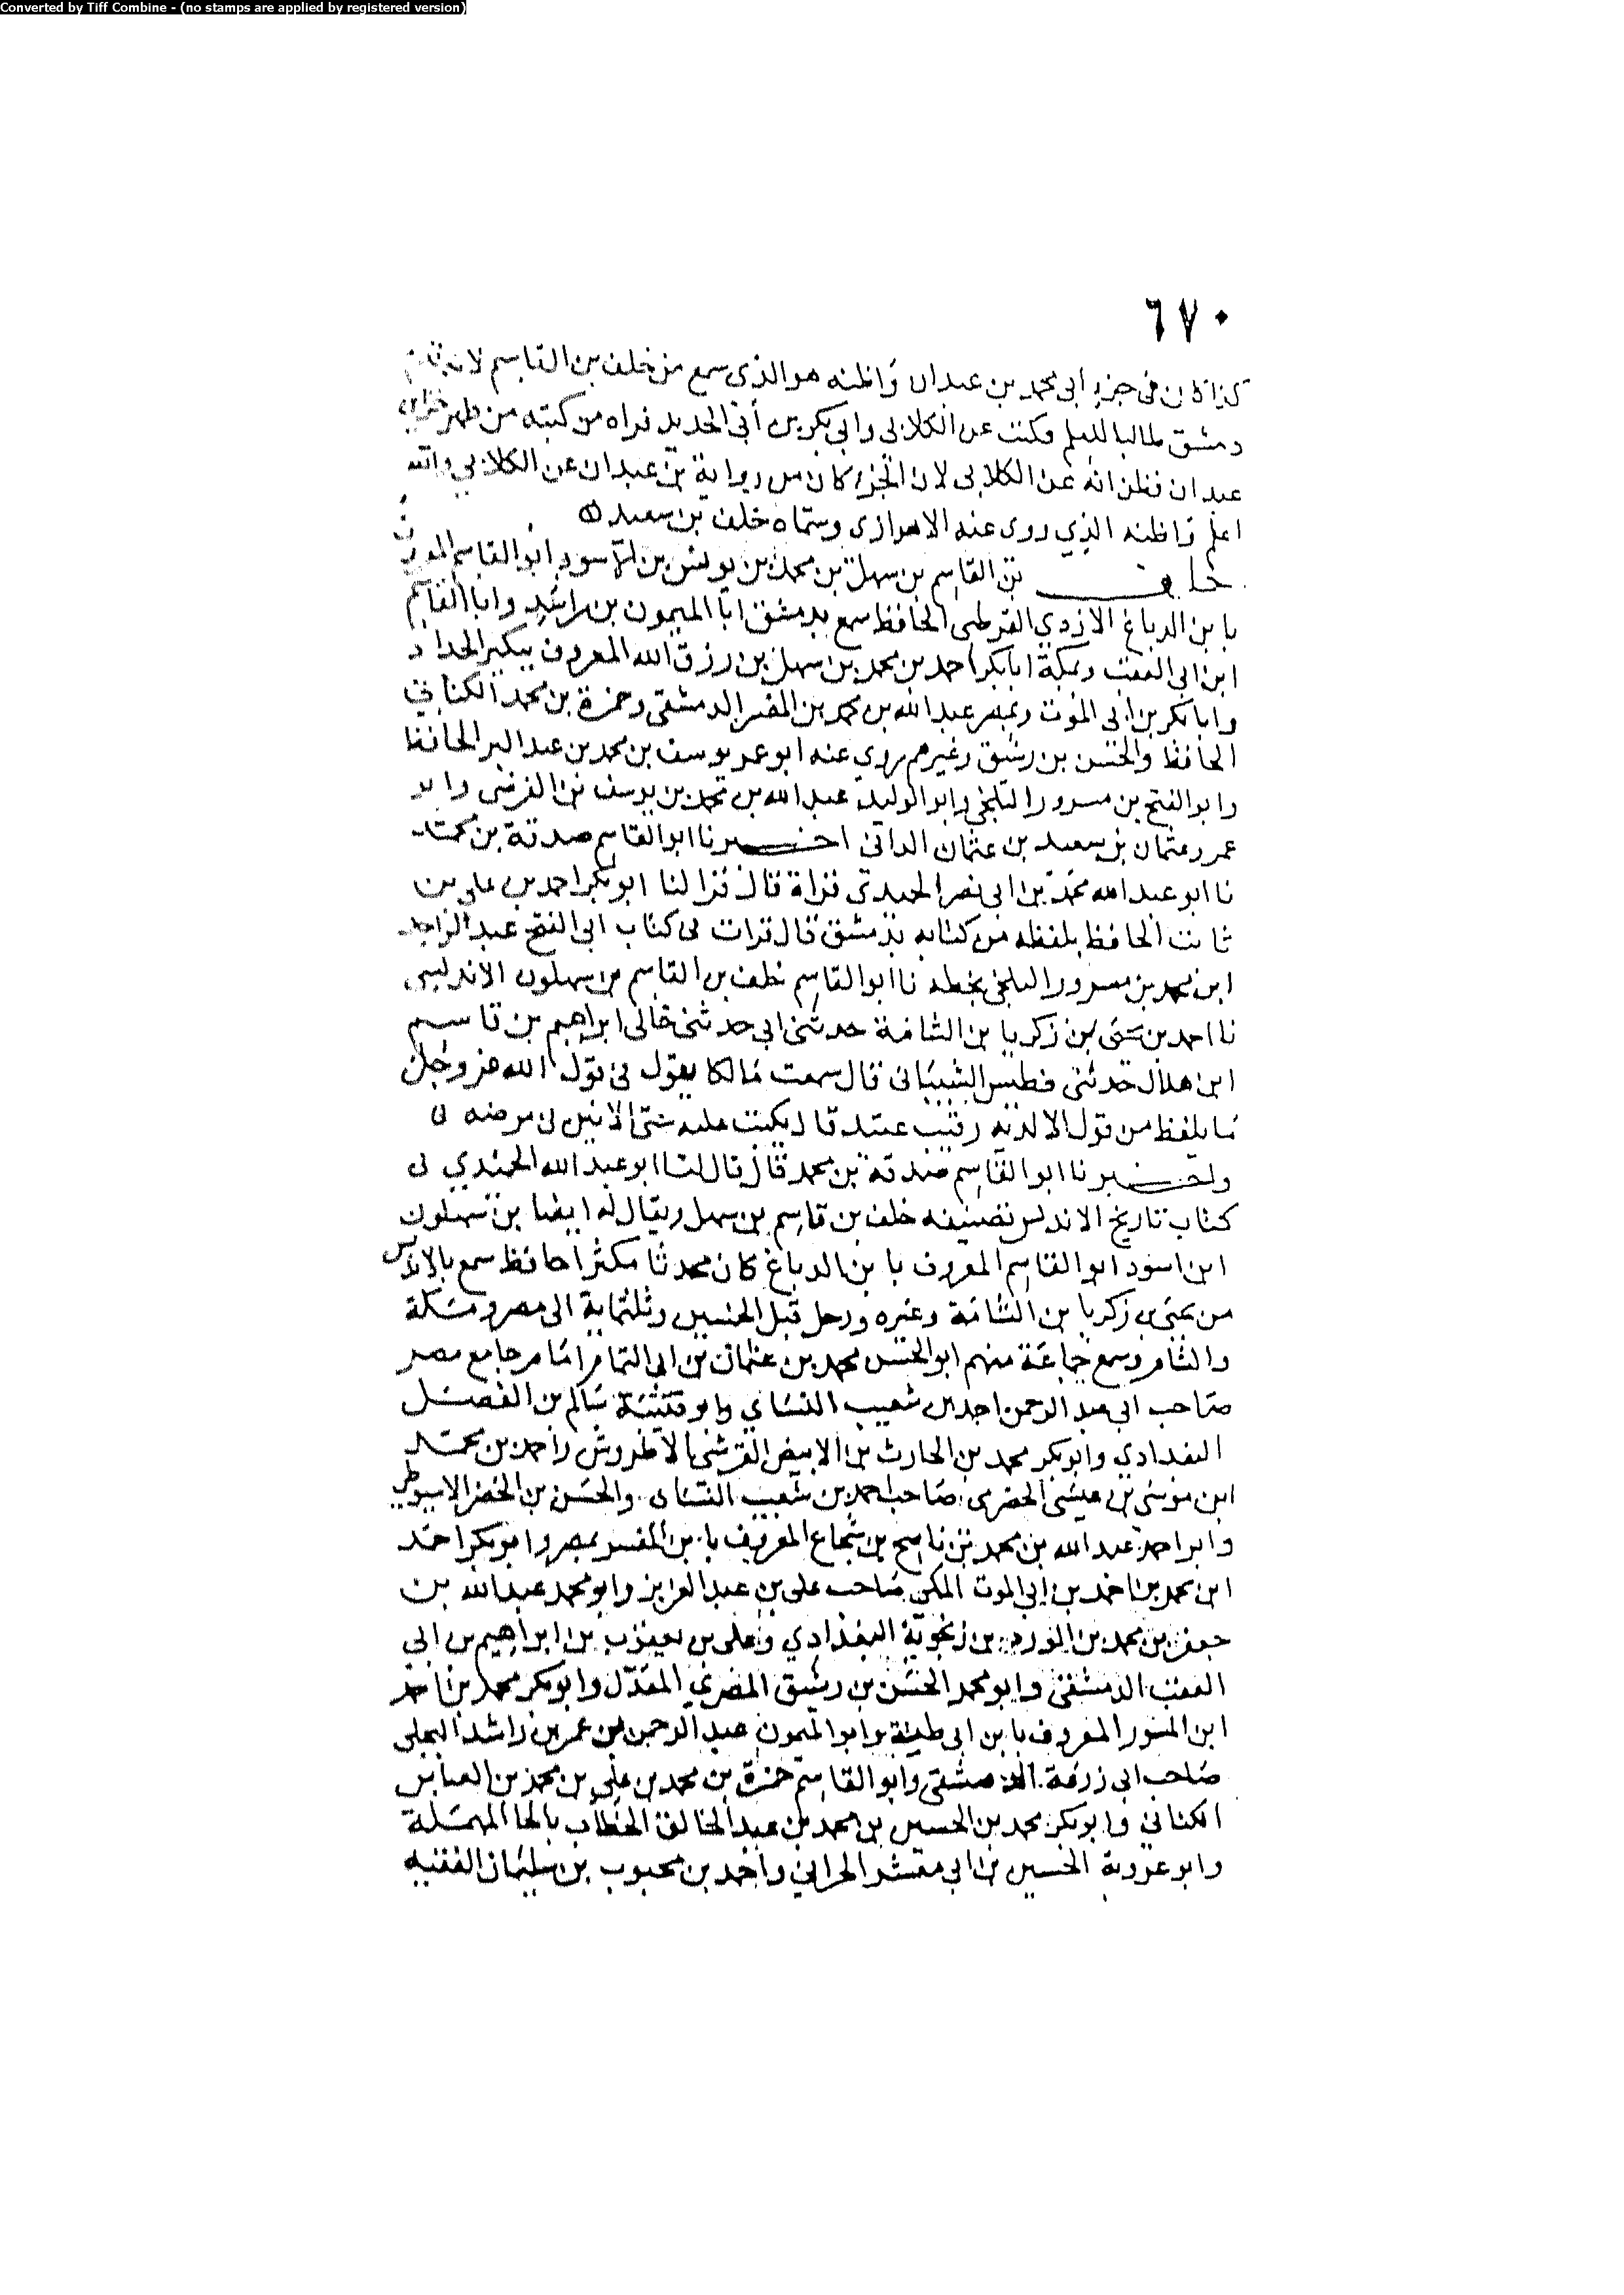 Converted by Tiff Combine - (no stamps are applied by registered version)
٦٧٠
كذا كان في جزء ابي محمد بن عبدان واظنه هو الذي سمع من خلف بن القاسم لانه
دمشق طالبا للعلم وكتب عن الكلابي وابي بكر بن أبي الحديد فراه من كتبه من ظهر جزء ابن
عبدان فظن انه عن الكلابي لان الجزء كان من رواية بن عبدان عن الكلابي والله
اعلم واظنه الذي روى عنه الاهوازي وسماه خلف بن سعيد
خلف بن القاسم بن سهل بن محمد بن يونس بن الاسود ابو القاسم المعروف
بابن الدباغ الازدي القرطبي الحافظ سمع بدمشق ابا الميمون بن راشد وابا القاسم
ابن ابي العقب وبمكة ابا بكر احمد بن محمد بن سهل بن رزق الله المعروف ببكير الحداد
وابا بكر بن ابي الموت وبمصر عبد الله بن محمد بن المفسر الدمشقي وحمزة بن محمد الكناني
الحافظ والحسن بن رشيق وغيرهم روي عنه ابو عمر يوسف بن محمد بن عبد البر الحافظ
وابو الفتح بن مسرور البلخي وابو الوليد عبد الله بن محمد بن يوسف بن الفرضي وابو
عمرو عثمان بن سعيد بن عثمان الداني اخبرنا ابو القاسم صدقة بن محمد
نا ابو عبد الله محمد بن ابي نصر الحميدي قراة قال قرا لنا ابو بكر احمد بن علي بن
ثابت الحافظ بلفظه من كتابه بدمشق قال قرات في كتاب ابي الفتح عبد الواحد
ابن محمد بن مسرور البلخي بخطه نا ابو القاسم خلف بن القاسم بن سهلون الاندلسي
نا احمد بن يحيى بن زكريا بن الشامة حدثني ابي حدثني خالي ابراهيم بن قاسم
ابن هلال حدثني فطيس الشيباني قال سمعت مالكا يقول في قول الله عز وجل
ما يلفظ من قول الا لديه رقيب عتيد قال يكتب عليه حتى الانين في مرضه
واخبرنا ابو القاسم صدقة بن محمد قال قال لنا ابو عبد الله الحميدي في
كتاب تاريخ الاندلس تصنيفه خلف بن قاسم بن سهل ويقال له ايضا بن سهلون
ابن اسود ابو القاسم المعروف بابن الدباغ كان محدثا مكثرا حافظا سمع بالاندلس
من يحيى بن زكريا بن الشامة وغيره ورحل قبل الخمسين وثلثماية الى مصر ومكة
والشام وسمع جماعة منهم ابو الحسن محمد بن عثمان بن ابي التمام امام جامع مصر
صاحب ابي عبد الرحمن احمد بن شعيب النساي وابو قتيبة سالم بن الفضل
البغدادي وابو بكر محمد بن الحارث بن الابيض القرشي الاطروش واحمد بن محمد
ابن موسى بن عيسى الحضرمي صاحب احمد بن شعيب النساى والحسن بن الخضر الاسيوطي
وابو احمد عبد الله بن محمد بن ناصح بن شجاع المعروف بابن المفسر بمصر وابو بكر احمد
ابن محمد بن احمد بن ابي الموت المكي صاحب علي بن عبد العزيز وابو محمد عبد الله بن
جعفر بن محمد بن الورد بن زنجوية البغدادي وعلي بن يعقوب بن ابراهيم بن ابي
العقب الدمشقي وابو محمد الحسن بن رشيق المصري المعدل وابو بكر محمد بن احمد
ابن المسور المعروف بابن ابي طنة وابو الميمون عبد الرحمن بن عمر بن راشد البجلي
صاحب ابي زرعة الدمشقي وابو القاسم حمزة بن محمد بن علي بن محمد بن العباس
الكناني وابو بكر محمد بن الحسين بن محمد بن عبد الخالق الحطاب بالحا المهملة
وابو عروبة الحسين بن ابي معشر الحراني واحمد بن محبوب بن سليمان الفقيه